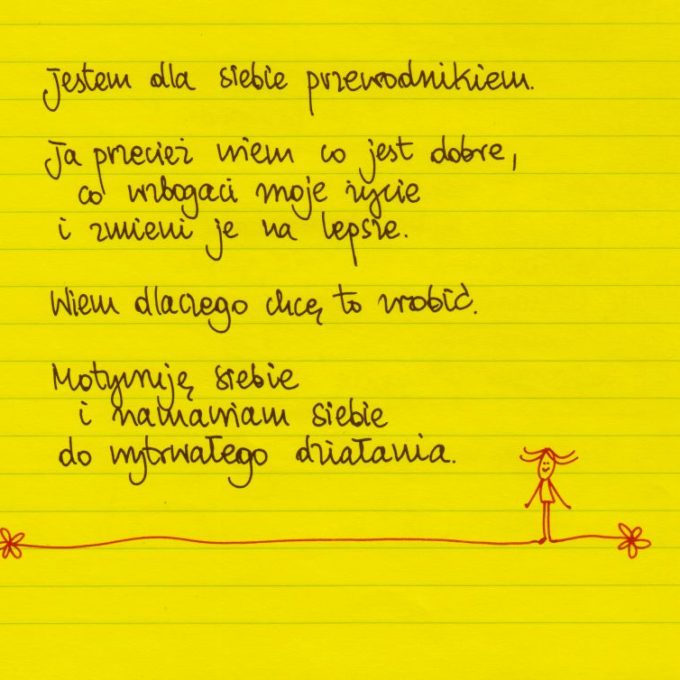 Jestem dla siebie przewodnikiem.
Ja przecież wiem co jest dobre,
co wzbogaci moje życie
i zmieni je na lepsze.
Wiem dlaczego chcę to zrobić.
Motywuję siebie
i namawiam siebie
do wytrwałego działania.